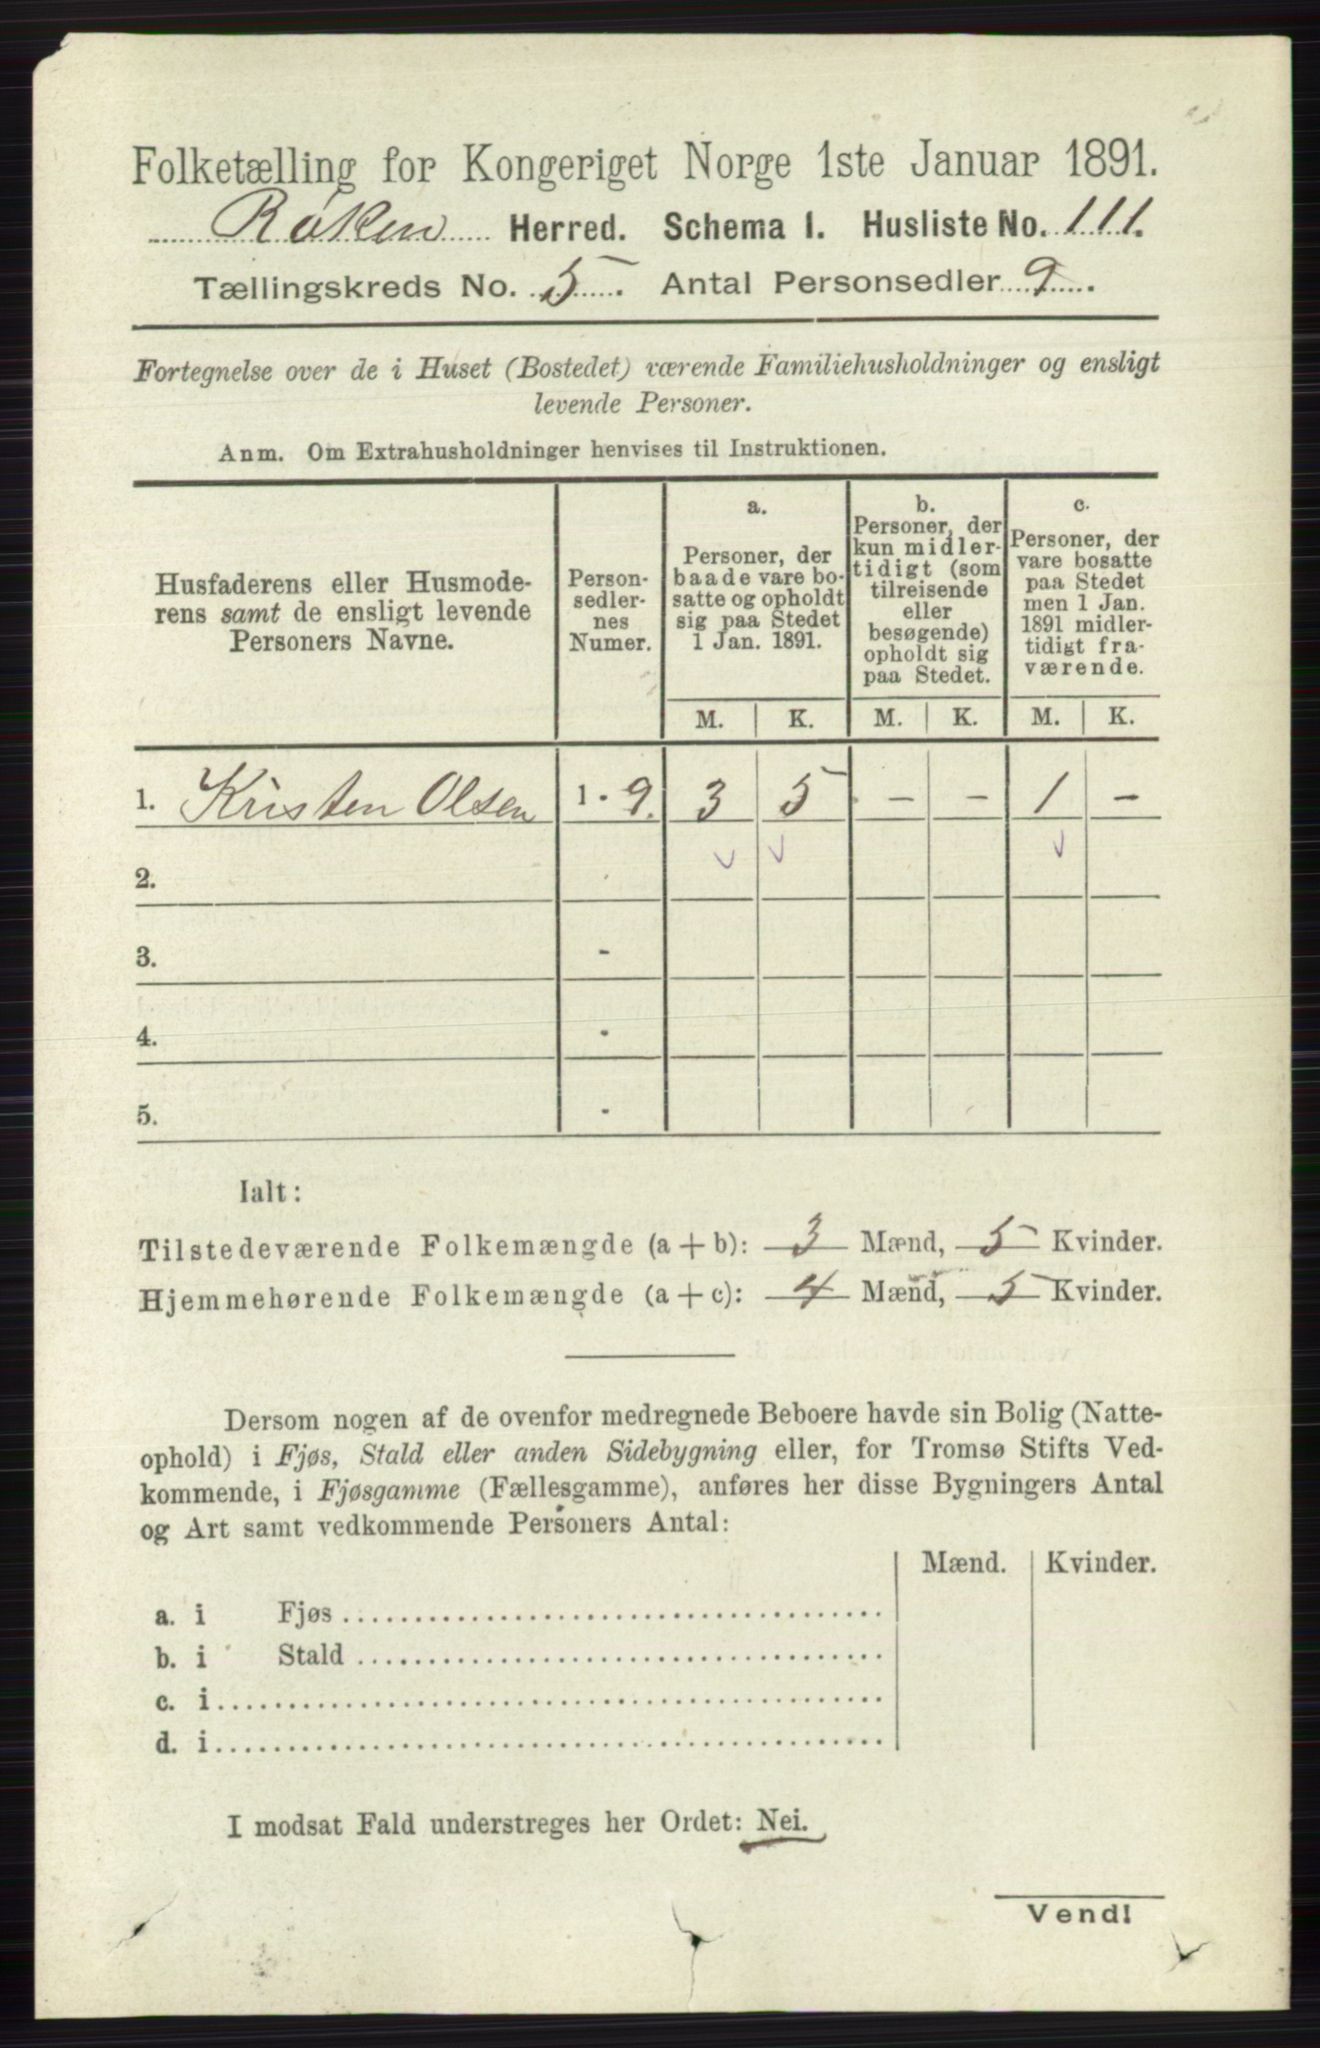 Folketælling for Kongeriget Norge 1ste Januar 1891.
Røken Herred. Schema I. Husliste No. 111.
Tællingskreds No. 5. Antal Personsedler 9.
Fortegnelse over de i Huset (Bostedet) værende Familiehusholdninger og ensligt
levende Personer.
Anm. Om Extrahusholdninger henvises til Instruktionen.
Husfaderens eller Husmode-
rens samt de ensligt levende
Personers Navne.
Person-
sedler-
nes
Numer.
a.
Personer, der
baade vare bo-
satte og opholdt
sig paa Stedet
1 Jan. 1891.
b.
Personer, der
kun midler-
tidigt (som
tilreisende
eller
besøgende)
opholdt sig
paa Stedet.
c.
Personer, der
vare bosatte
paa Stedet
men 1 Jan.
1891 midler-
tidigt fra-
værende.
M. K. M. K. M. K.
1. Kristen Olsen 1 - 9. 3 5 - - 1 -
2.
3. -
4. -
5. -
Ialt:
Tilstedeværende Folkemængde (a + b): 3 Mænd, 5 Kvinder.
Hjemmehørende Folkemængde (a + c): 4 Mænd, 5 Kvinder.
Dersom nogen af de ovenfor medregnede Beboere havde sin Bolig (Natte-
ophold) i Fjøs, Stald eller anden Sidebygning eller, for Tromsø Stifts Ved-
kommende, i Fjøsgamme (Fællesgamme), anføres her disse Bygningers Antal
og Art samt vedkommende Personers Antal:
Mænd. Kvinder.
a. i Fjøs
b. i Stald
c. i
d. i
I modsat Fald understreges her Ordet: Nei.
Vend!